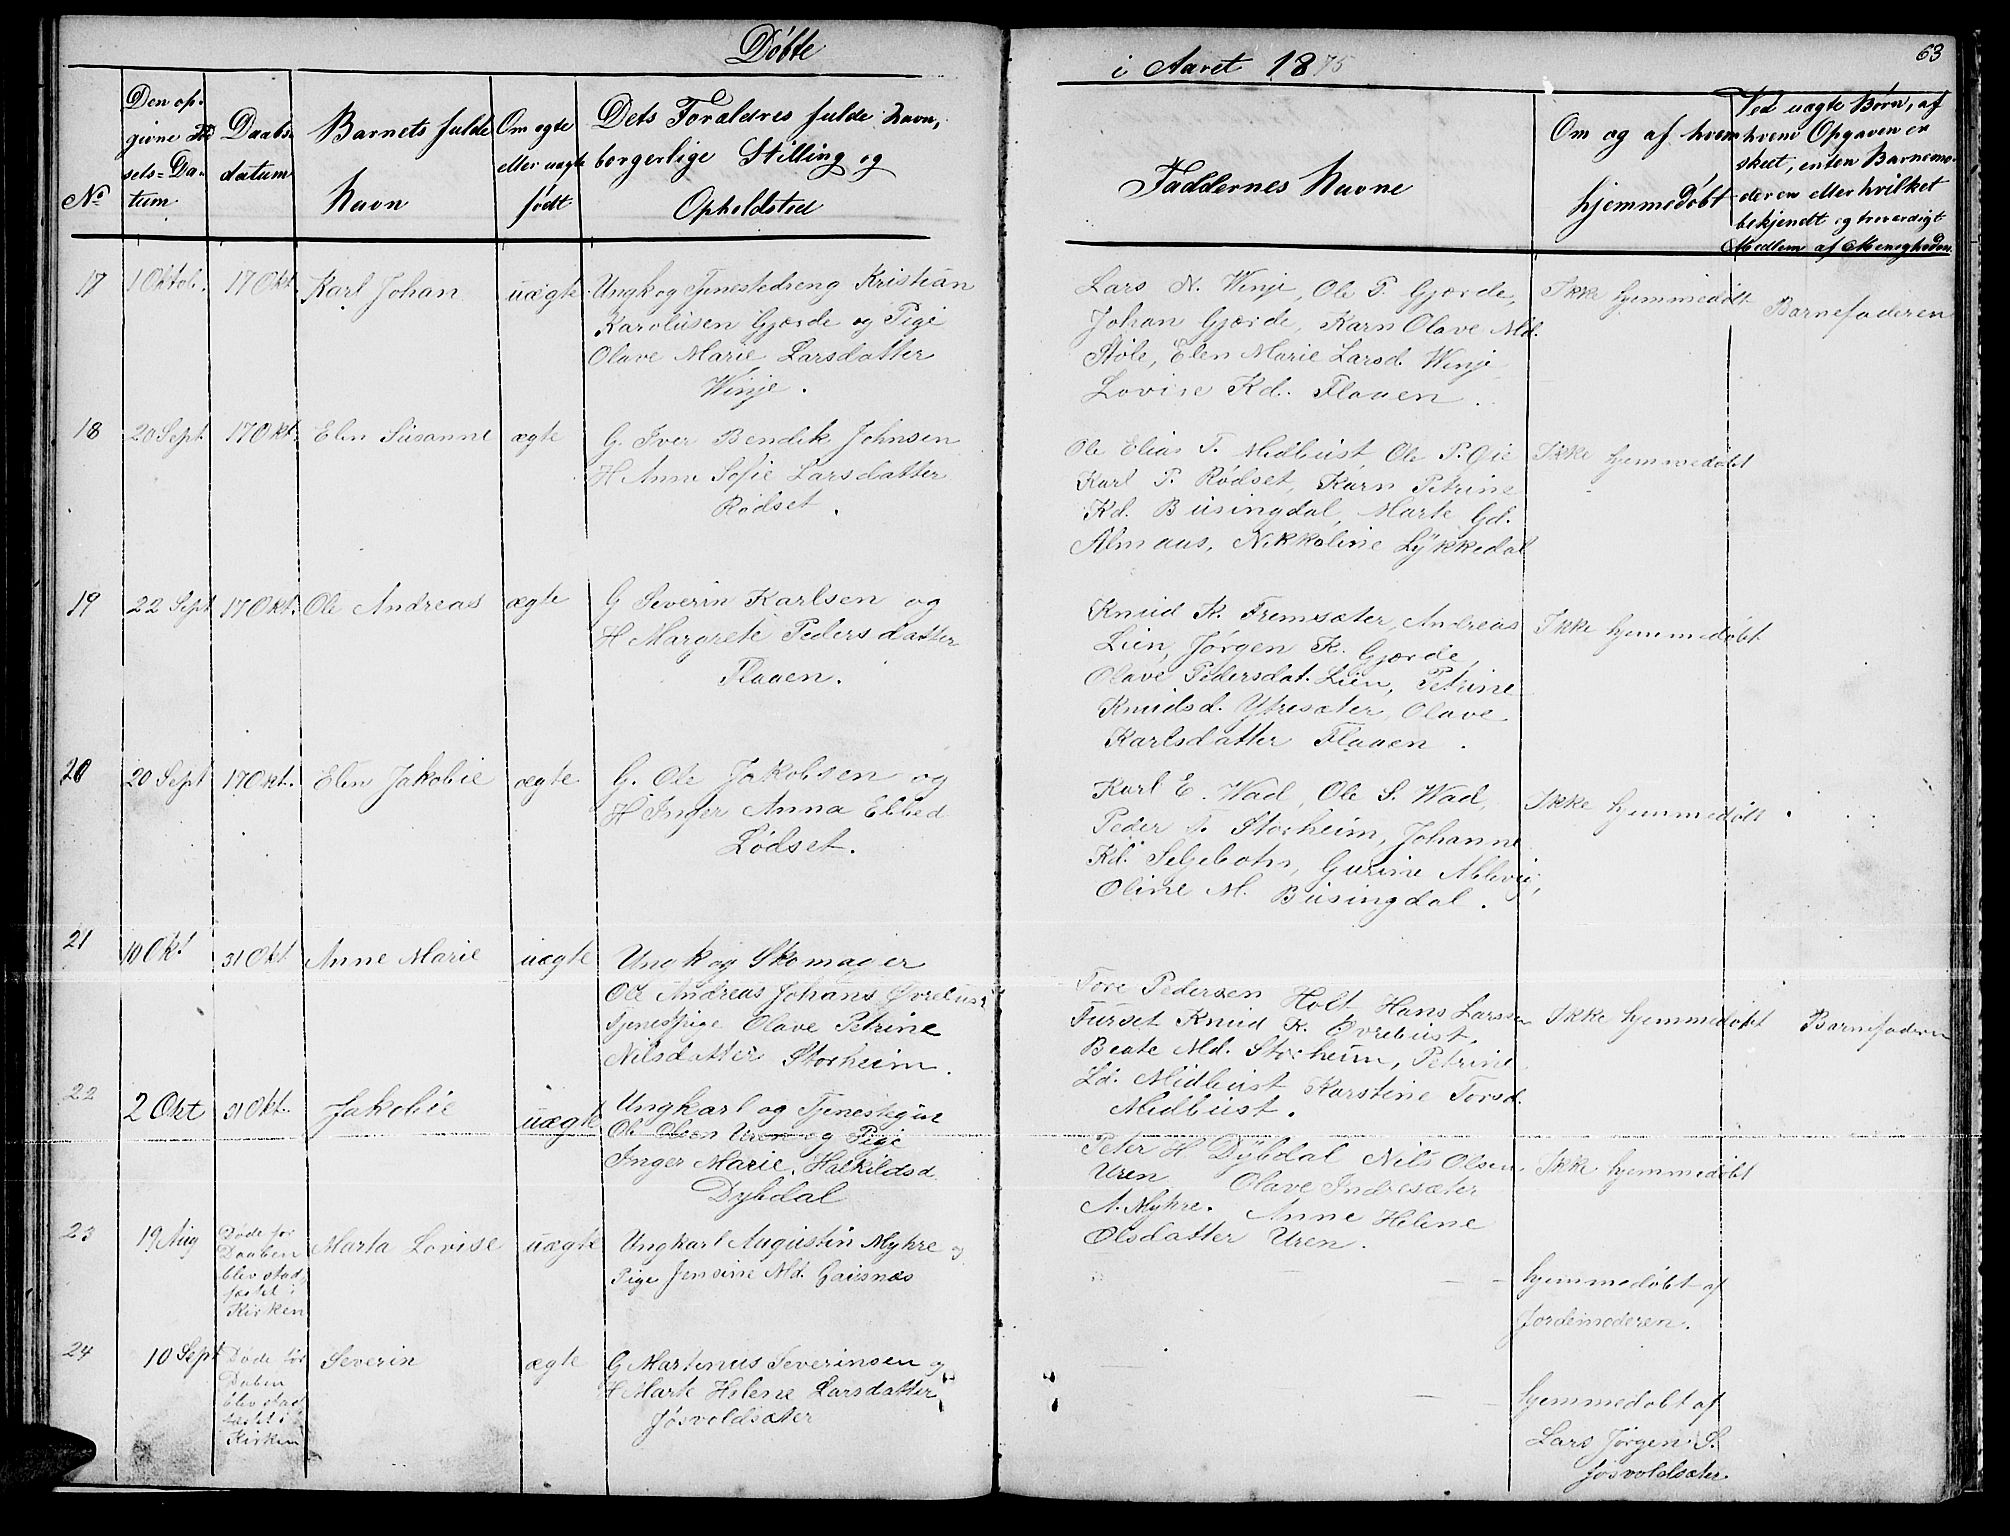 Døbte
i Aaret 1875
63
No
Den op-
givne Fød-
sels-Da-
tum
Daabs-
datum
Barnets fulde
Navn
Om ægte
eller uægte
født
Dets Forældres fulde Navn,
borgerlige Stilling og
Opholdsted
Faddernes Navne
Om og af hvem
hjemmedøbt
Ved uægte Børn, af
hvem Opgaven er
skeet, enten Barnemo-
deren eller hvilket
bekjendt og troværdigt
Medlem af Menigheden
17 1 Oktob. 17 Okt. Karl Johan uægte
Ungk og Tjenestedreng Kristian
Karolusen Gjærde og Pige
Olave Marie Larsdatter
Winje.
Lars N. Winje, Ole P. Gjærde,
Johan Gjærde, Karn Olave Md.
Støle, Elen Marie Larsd. Winje
Lovise Kd. Flaaen.
Ikke hjemmedøbt
Barnefaderen
18 20 Sept 17 Okt. Elen Susanne ægte
G. Iver Bendik Johnsen
H Anne Sofie Larsdatter
Rødset.
Ole Elias T. Midbust, Ole P. Gie
Karl P. Rødset, Karn Petrine
Kd. Busingdal, Marte Gd.
Almaas, Nikkoline Lykkedal
Ikke hjemmedøbt
19 22 Sept 17 Okt. Ole Andreas ægte
G Severin Karlsen og
H Margrete Pedersdatter
Flaaen.
Knud K. Fremsæter, Andreas
Lien, Jørgen K. Gjærde,
Olave Pedersdat. Lien, Petrine
Knudsd. Ytresæter, Olave
Karlsdatter Flaaen.
Ikke hjemmedøbt
20 20 Sept 17 Okt. Elen Jakobie ægte
G. Ole Jakobsen og
H Inger Anna Ebbed
Lødset.
Karl E. Wad, Ole S. Wad,
Peder T. Storheim, Johanne
Kd. Seljebotn, Gurine
Oline M. Busingdal.
Ikke hjemmedøbt
21 10 Okt 31 Okt Anne Marie uægte
Ungk og Skomager
Ole Andreas Johans Øvrebust
Tjenestpige Olave Petrine
Nilsdatter Storheim.
Tore Pedersen Holt Hans Larsen
Furset Knud K. Øvrebust,
Beate Md. Storheim, Petrine
Ld. Midbust Karstine Torsd.
Midbust.
Ikke hjemmedøbt
Barnefaderen
22 2 Okt 31 Okt. Jakobie uægte
Ungkarl og
Ole Olsen Uren og Pige
Inger Marie Halkildsd
Dybdal
Peter H Dybdal Nils Olsen
Uren Olave Indresæter
A. Myhre. Anne Helene
Olsdatter Uren.
Ikke hjemmedøbt
23 19 Aug
Døde før
Daaben
blev stad-
fæstet i
Kirken
Marta Lovise uægte
Ungkarl Augustin Myhre og
Pige Jensine Md. Gausnæs
hjemmedøbt af
Jordemoderen.
24 10 Sept
Døde før
Daben
blev stad-
fæstet i
Kirken
Severin ægte
G Martinus Severinsen og
H Marte Helene Larsdatter
Jøsvoldsæter
hjemmedøbt af
Lars Jørgen S.
Jøsvoldsæter